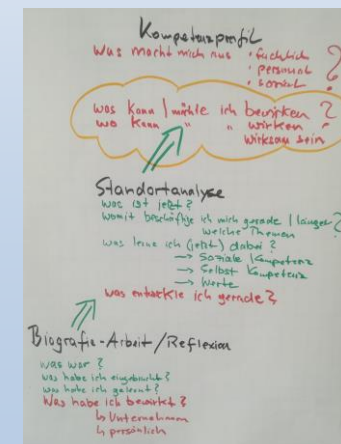 Kompetenzprofil
Was macht mich aus • fachlich ?
• personal
• sozial
was kann / möchte ich bewirken ?
wo kann " " wirken
wirksam sein
Standortanalyse
was ist jetzt ?
womit beschäftige ich mich gerade / länger ?
welche Themen
was lerne ich (jetzt) dabei ?
→ Soziale Kompetenz
→ Selbst Kompetenz
→ Werte
was entwickle ich gerade ?
Biografie-Arbeit / Reflexion
was war ?
was habe ich eingebracht ?
was habe ich gelernt ?
Was habe ich bewirkt ?
↳ Unternehmen
↳ persönlich